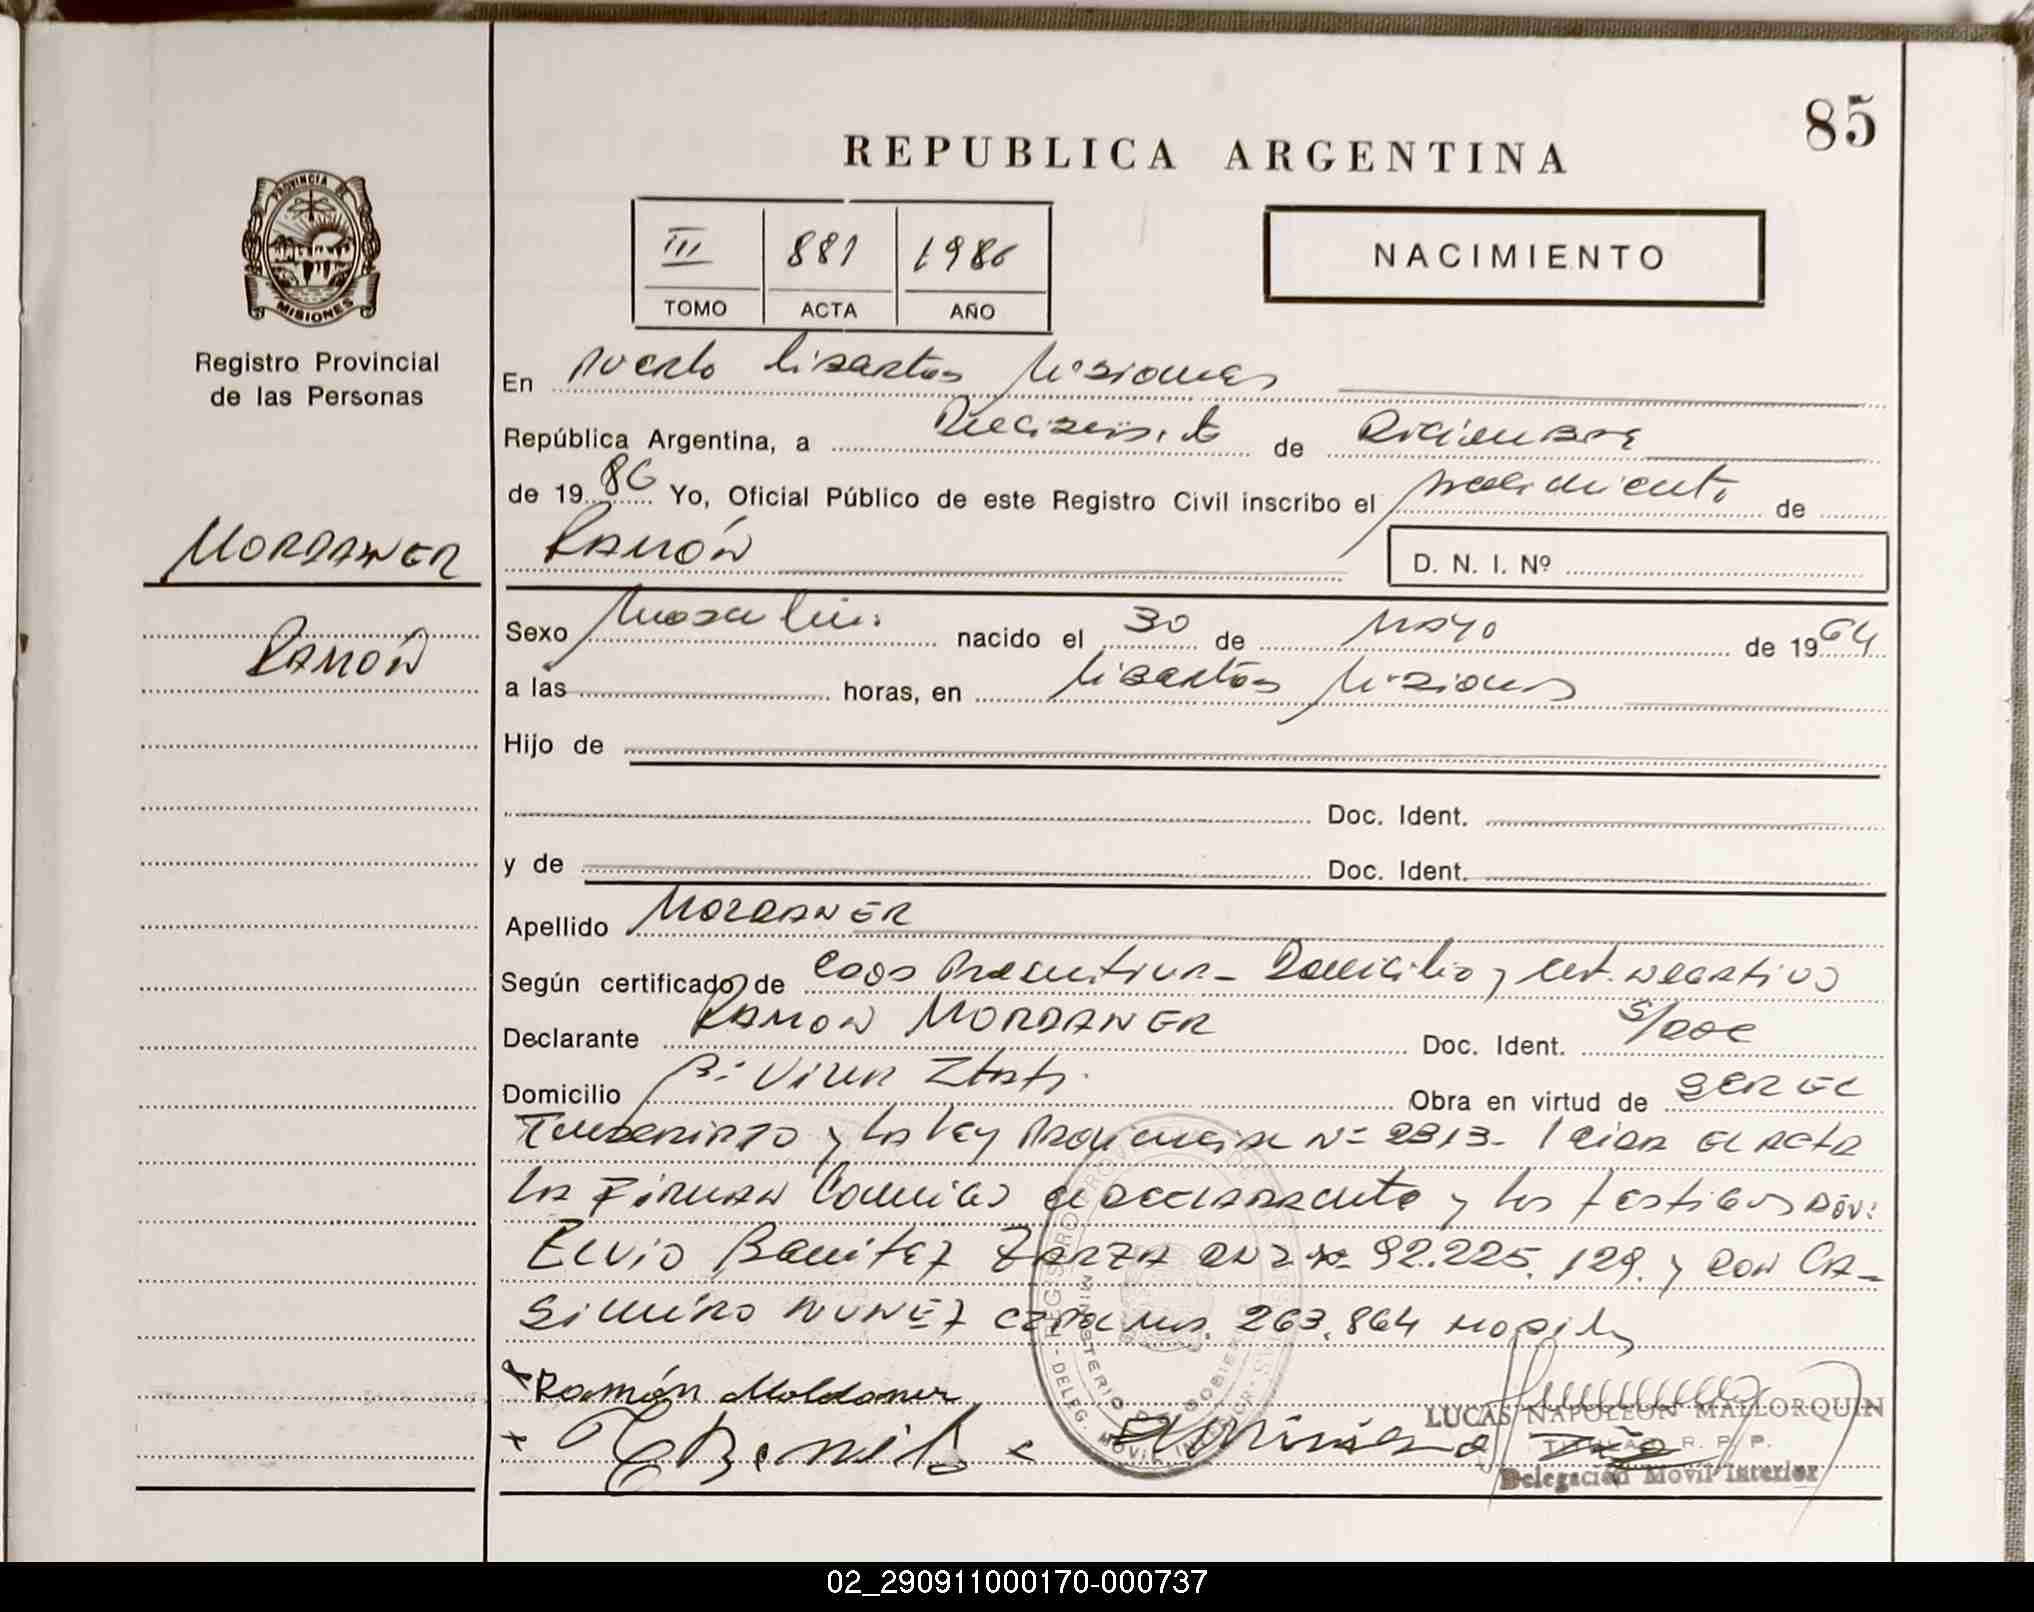 85
REPUBLICA ARGENTINA
PROVINCIA DE
MISIONES
Registro Provincial
de las Personas
III 881 1986
TOMO ACTA AÑO
NACIMIENTO
En Puerto Libertad Misiones
República Argentina, a Diecisiete de Diciembre
de 1986 Yo, Oficial Público de este Registro Civil inscribo el nacimiento de
MORDANER
RAMÓN
D. N. I. Nº
RAMÓN
Sexo Masculino nacido el 30 de MAYO de 1964
a las horas, en Libertad Misiones
Hijo de
Doc. Ident.
y de Doc. Ident.
Apellido MORDANER
Según certificado de Domicilio y cert. negativo
Declarante RAMON MORDANER Doc. Ident. S/doc
Domicilio Bº Obra en virtud de SER EL
y la Ley Provincial Nº 2313- Leida el acta
la firman conmigo el declarante y los testigos Dón:
Elvio Benitez ZARZA DNI Nº 92.225.129. y DON CA-
SIMIRO NUNEZ 263.864
x Ramón Moldaner
x
LUCAS NAPOLEON MALLORQUIN
TITULAR R. P. P.
Delegación Movil Interior
02_290911000170-000737